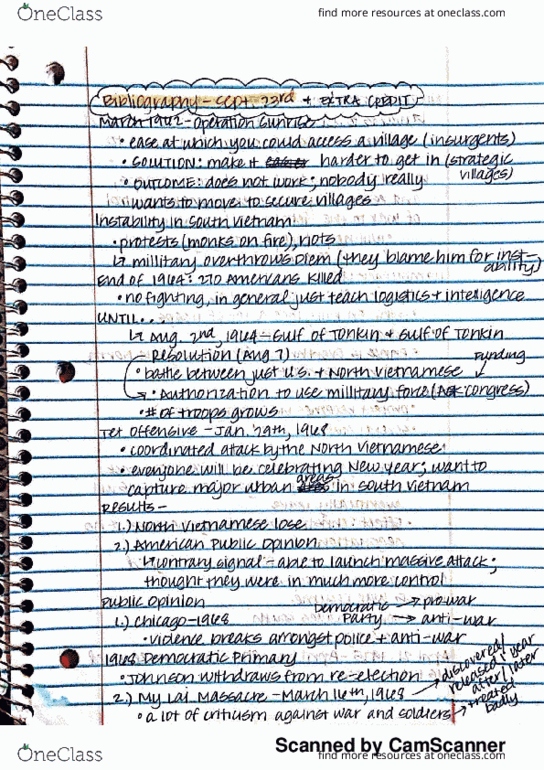 OneClass
find more resources at oneclass.com
Bibliography - Sept. 23rd + EXTRA CREDIT
March 1962 - Operation Sunrise
• ease at which you could access a village (insurgents)
• SOLUTION: make it easier harder to get in (strategic villages)
• OUTCOME: does not work; nobody really
wants to move to secure villages
Instability in South Vietnam
• protests (monks on fire), riots
↳ military overthrows Diem (they blame him for instability)
End of 1964: 270 Americans killed
• no fighting, in general just teach logistics + intelligence
UNTIL...
↳ Aug. 2nd, 1964 - Gulf of Tonkin + Gulf of Tonkin
Resolution (Aug 7)
Funding
• battle between just U.S. + North Vietnamese
→ • Authorization to use military force (congress)
• # of troops grows
Tet Offensive - Jan. 29th, 1968
• coordinated attack by the North Vietnamese
• everyone will be celebrating New Year; want to
capture major urban areas in South Vietnam
RESULTS -
1.) North Vietnamese lose
2.) American Public Opinion
↳ contrary signal - able to launch massive attack;
thought they were in much more control
Public Opinion
Democratic → pro-war
1.) Chicago - 1968 Party → anti-war
• violence breaks amongst police + anti-war
1968 Democratic Primary
• Johnson withdraws from re-election
2.) My Lai Massacre - March 16th, 1968 → discovered/
released 1 year
after/later
• a lot of criticism against war and soldiers → treated
badly
Scanned by CamScanner
OneClass
find more resources at oneclass.com